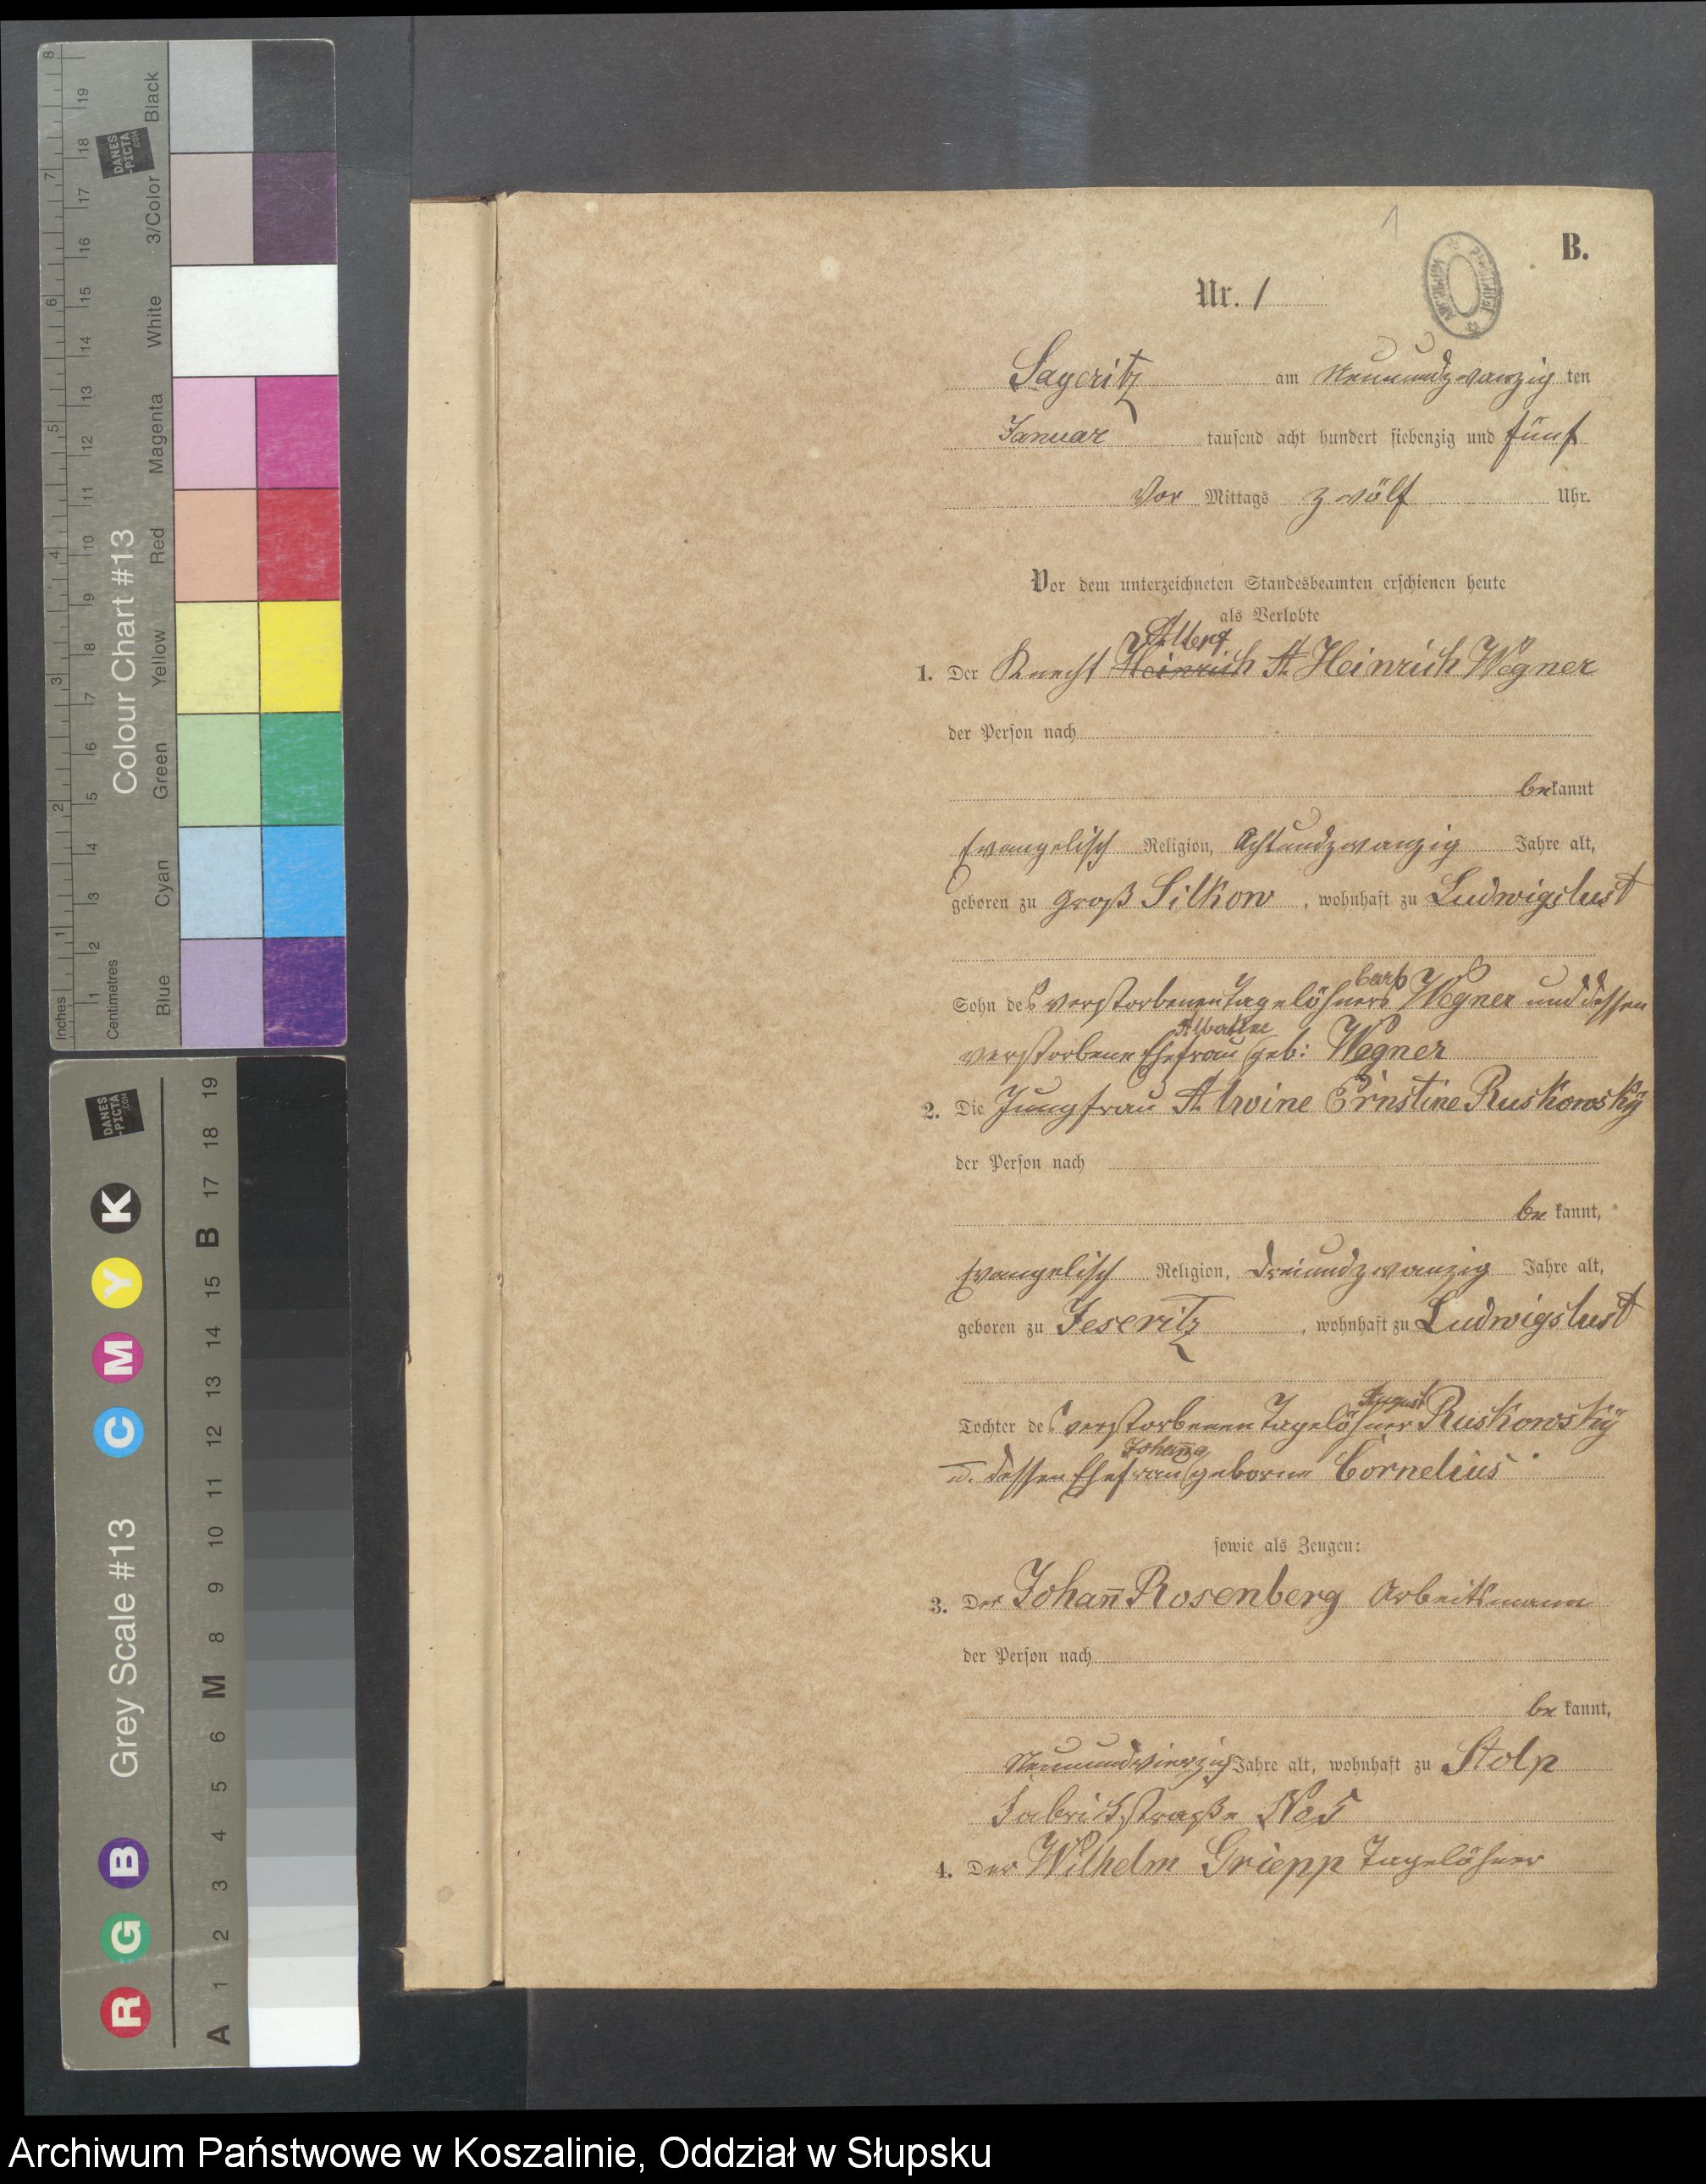 8
7
6
5
4
3
2
1
Inches
19
18
17
16
15
14
13
12
11
10
9
8
7
6
5
4
3
2
1
Centimetres
DANES
-PICTA
.COM
Colour Chart #13
Black
3/Color
White
Magenta
Red
Yellow
Green
Cyan
Blue
DANES
-PICTA
.COM
Grey Scale #13
R G B C M Y K
A 1 2 3 4 5 6 M 8 9 10 11 12 13 14 15 B 17 18 19
1
B.
Nr. 1
Sageritz am Neunundzwanzig ten
Januar tausend acht hundert siebenzig und fünf
Vor Mittags zwölf Uhr.
Vor dem unterzeichneten Standesbeamten erschienen heute
als Verlobte
Albert
1. Der Knecht Heinrich A. Heinrich Wegner
der Person nach
bekannt
Evangelisch Religion, Achtundzwanzig Jahre alt,
geboren zu Groß Silkow, wohnhaft zu Ludwigslust
Carl
Sohn des verstorbenen Tagelöhners Wegner und dessen
verstorbene Ehefrau geb: Wegner
2. Die Jungfrau Alwine Ernstine Ruskowsky
der Person nach
be kannt,
Evangelisch Religion, dreiundzwanzig Jahre alt,
geboren zu Jeseritz, wohnhaft zu Ludwigslust
August
Tochter des verstorbenen Tagelöhner Ruskowsky
Johanna
u. dessen Ehefrau geborne Cornelius
sowie als Zeugen:
3. Der Johann̅ Rosenberg Arbeitsmann
der Person nach
be kannt,
Neunundvierzig Jahre alt, wohnhaft zu Stolp
Fabrikstraße No 5
4. Der Wilhelm Griepp Tagelöhner
Archiwum Państwowe w Koszalinie, Oddział w Słupsku